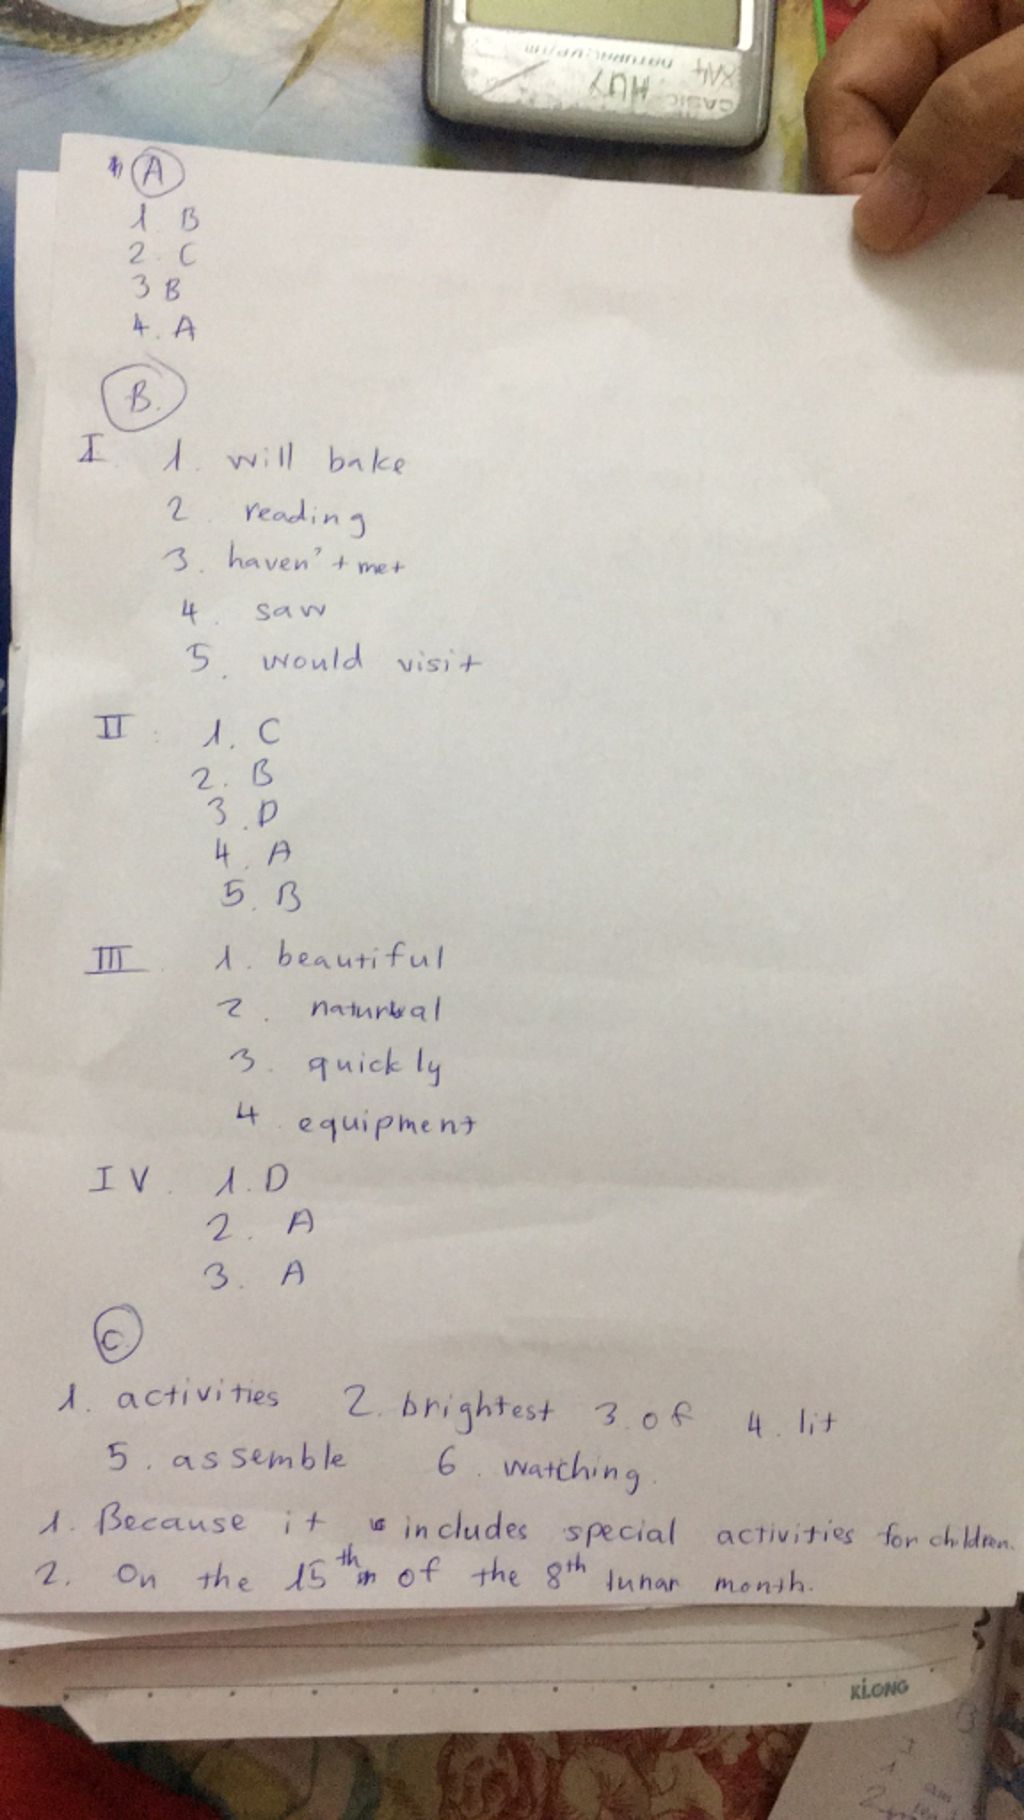 CASIO HUY
A
1 B
2. C
3 B
4. A
B.
I 1. will bake
2. reading
3. haven't met
4. saw
5. would visit
II 1. C
2. B
3. D
4. A
5. B
III 1. beautiful
2. natural
3. quickly
4. equipment
IV. 1. D
2. A
3. A
C.
1. activities 2. brightest 3. of 4. lit
5. assemble 6. watching.
1. Because it includes special activities for children.
2. On the 15th of the 8th lunar month.
KLONG